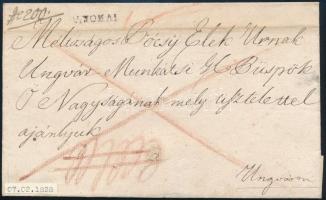 V.TOKAI
Méltóságos Pócsy Elek Urnak
Ungvár Munkátsi G. Püspök
Ő Nagyságának mely tisztelettel
ajánljuk
Ungváron
07.02.1828